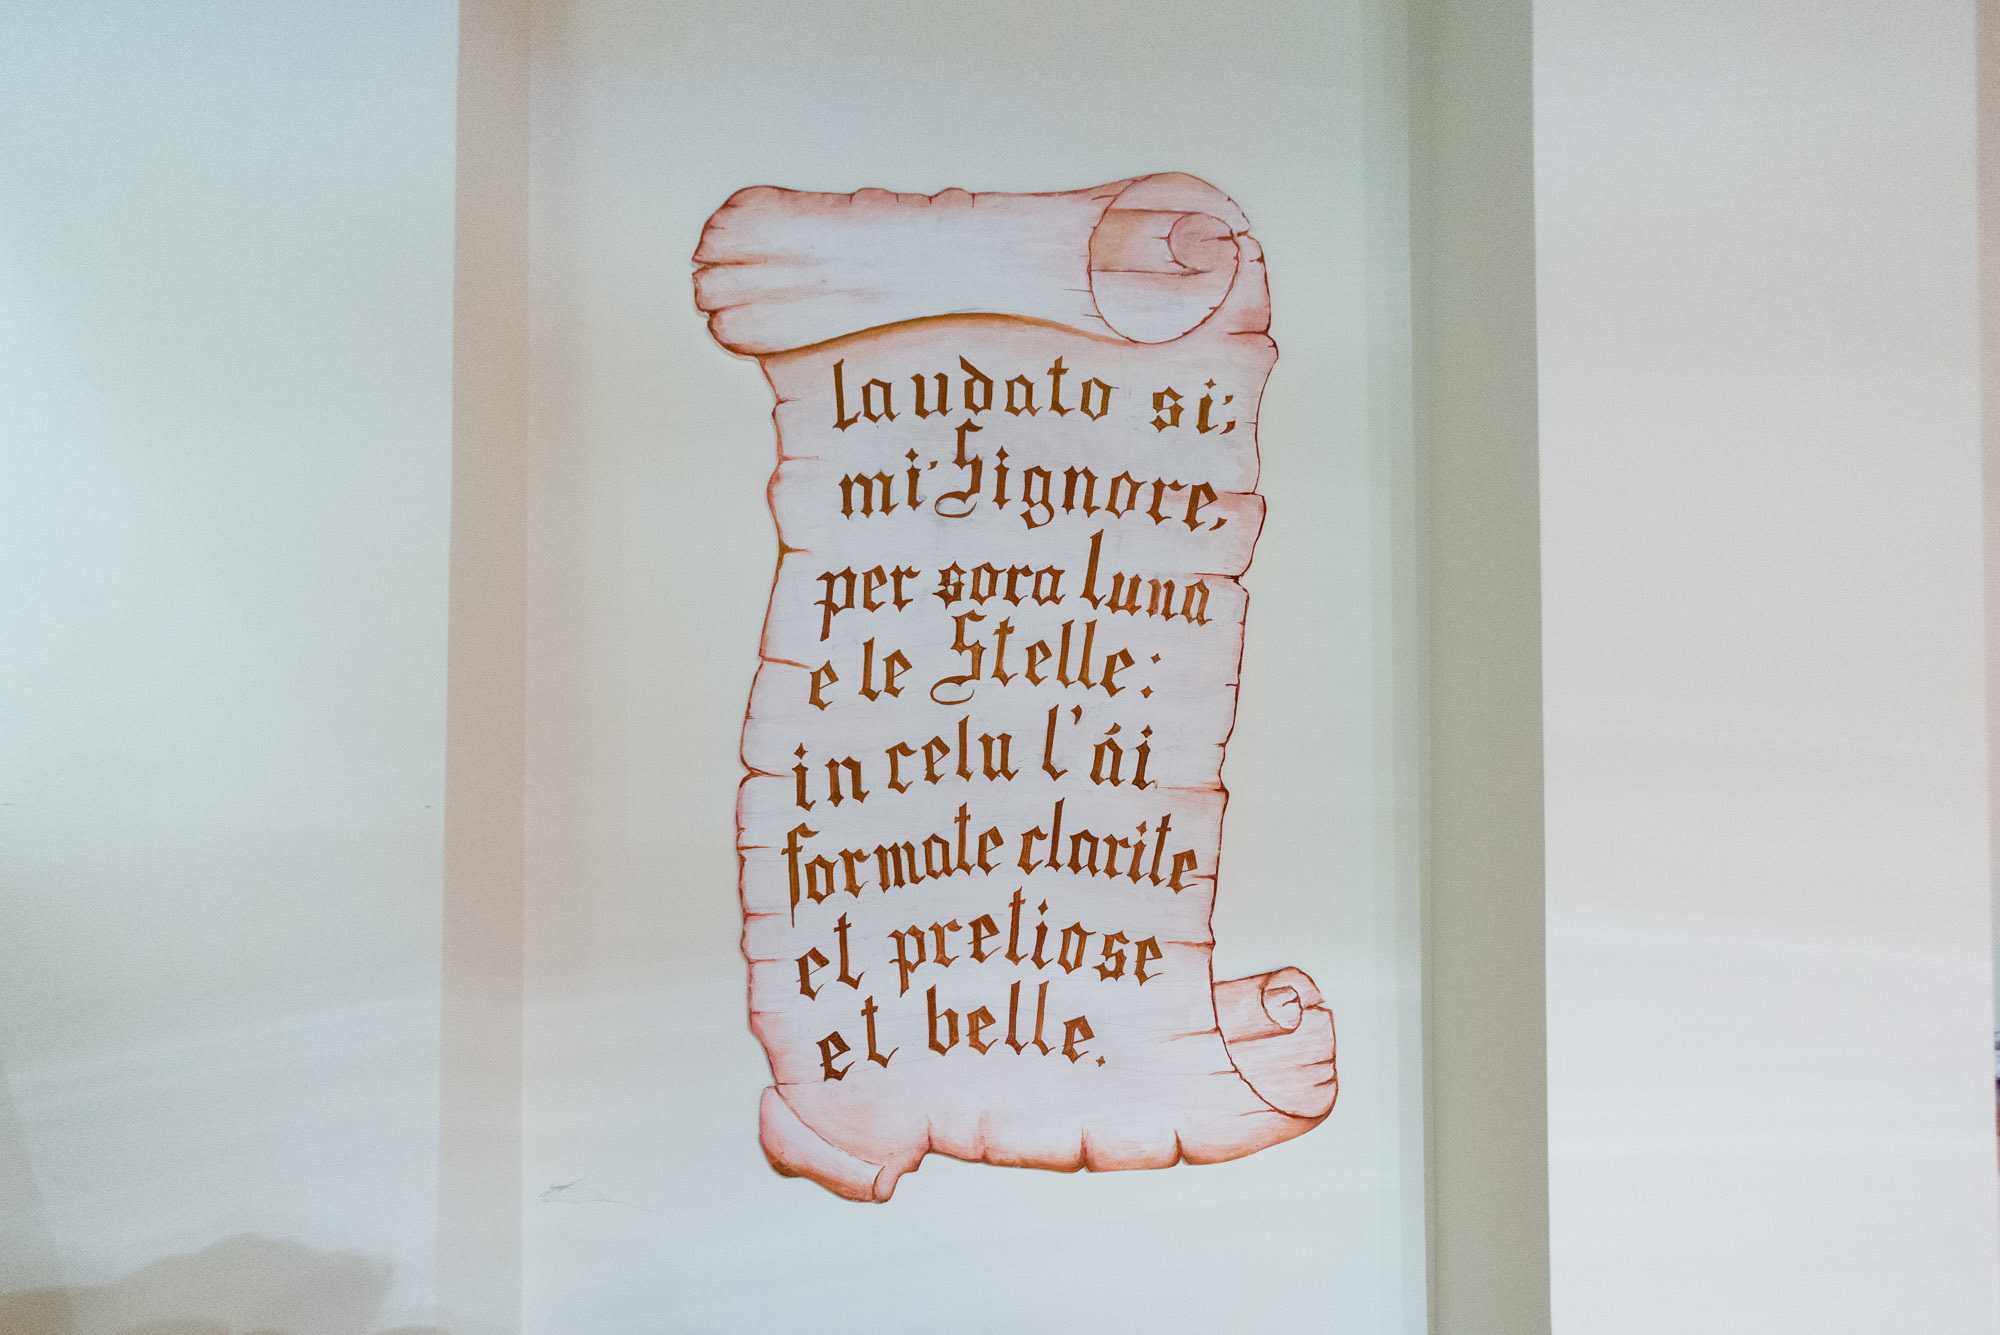 laudato si',
mi' Signore,
per sora luna
e le Stelle:
in celu l'ái
formate clarite
et pretiose
et belle.